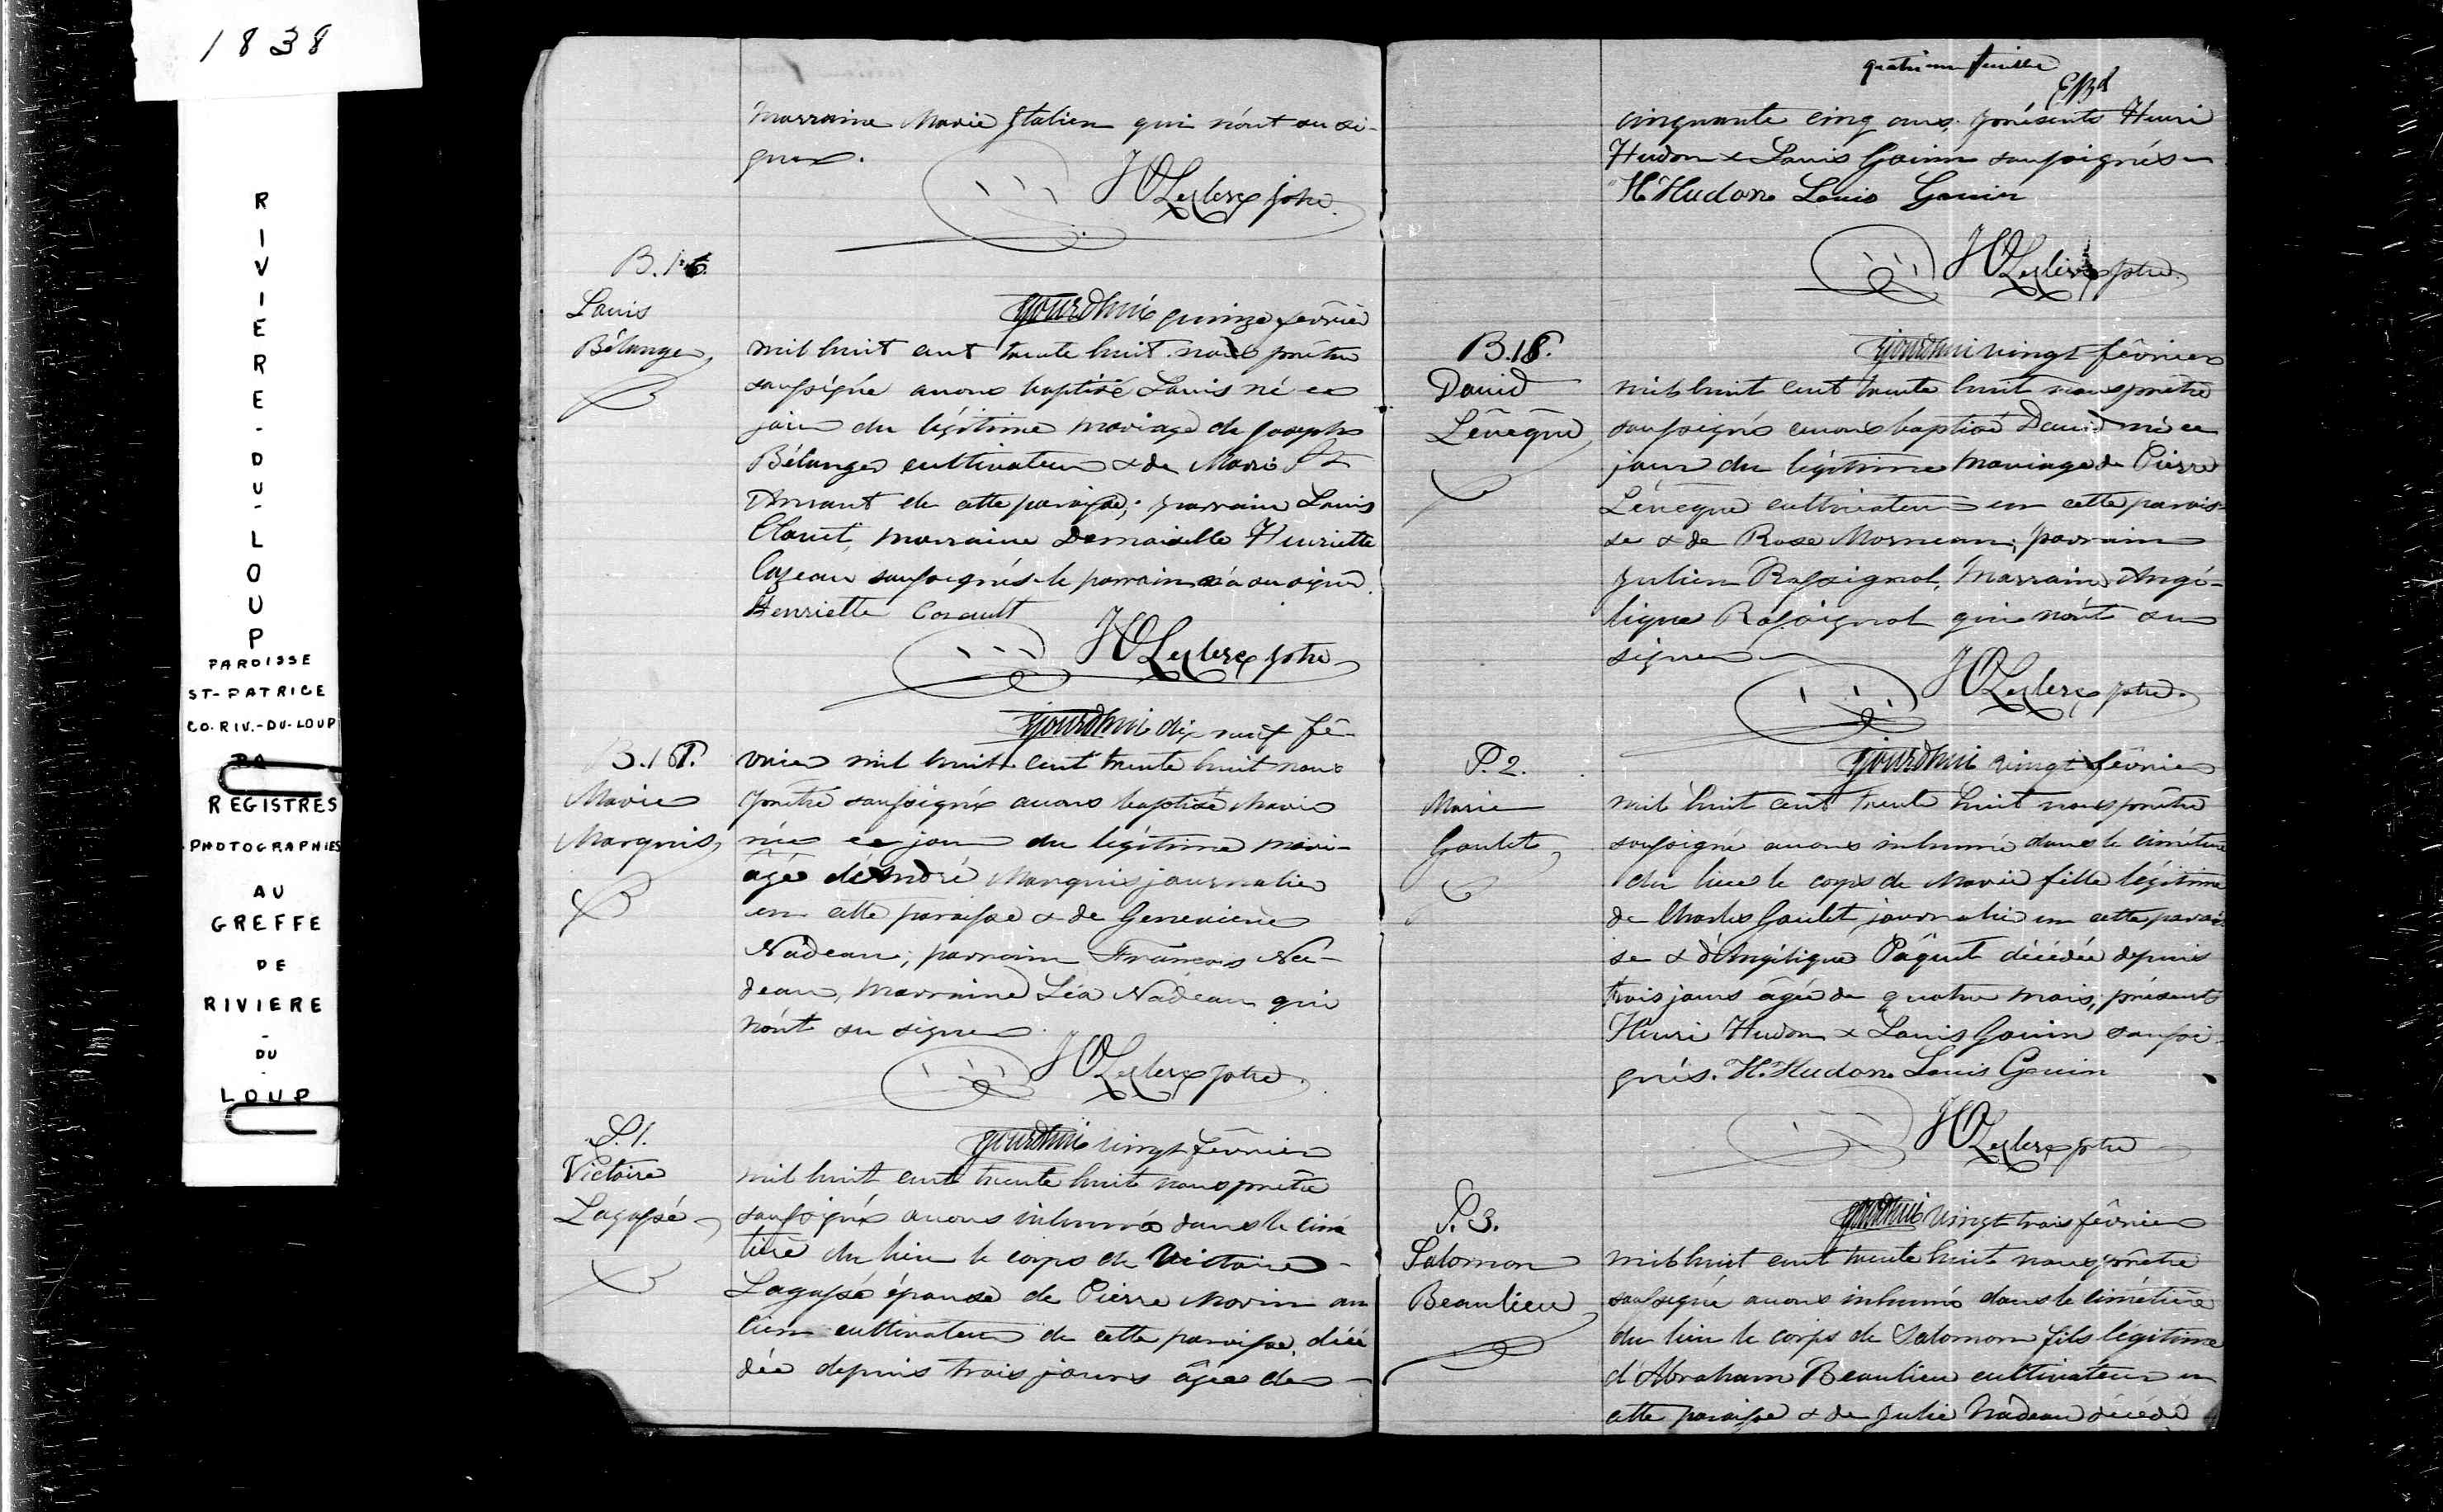 1838
RIVIERE-DU-LOUP
PAROISSE
ST-PATRICE
CO. RIV.-DU-LOUP
REGISTRES
PHOTOGRAPHIES
AU
GREFFE
DE
RIVIERE
-
DU
-
LOUP
marraine Marie Italien qui n'ont su si-
gner.
JOLeclerc ptre.
B. 16
Louis
Bélanger
Jourdhui quinze février
mil huit cent trente huit nous prêtre
soussigné avons baptisé Louis né ce
jour du légitime mariage de Joseph
Bélanger cultivateur & de Marie St
Amant de cette paroisse; parrain Louis
Clouet, marraine Demoiselle Henriette
Cazeau soussignés le parrain n'a su signer.
Henriette Casault
JOLeclerc ptre
B. 17.
Marie
Marquis
Jourdhui dix neuf fé-
vrier mil huit cent trente huit nous
prêtre soussigné avons baptisé Marie
née ce jour du légitime mari-
âge d'André Marquis journalier
en cette paroisse & de Genevieve
Nadeau; parrain François Na-
deau, marraine Léa Nadeau qui
n'ont su signer.
JOLeclerc ptre.
S. 1.
Victoire
Lagassé
Jourdhui vingt février
mil huit cent trente huit nous prêtre
soussigné avons inhumé dans le cimé
tière du lieu le corps de Victoire
Lagassé épouse de Pierre Morin an
cien cultivateur de cette paroisse, décé
dée depuis trois jours âgée de
quatrieme feuille
cinquante cinq ans; présents Henri
Hudon & Louis Gouin soussignés
H. Hudon Louis Gouin
JOLeclerc ptre.
B. 18.
David
Lévêque
Jourdhui vingt février
mil huit cent trente huit nous prêtre
soussigné avons baptisé David né ce
jour du légitime mariage de Pierre
Lévêque cultivateur en cette parois-
se & de Rose Morneau; parrain
Julien Rossignol, marraine Angé-
lique Rossignol qui n'ont su
signer
JOLeclerc ptre.
S. 2.
Marie
Goulet
Jourdhui vingt février
mil huit cent trente huit nous prêtre
soussigné avons inhumé dans le cimétière
du lieu le corps de Marie fille légitime
de Charles Goulet journalier en cette parois-
se & d'Angélique Pâquet décédée depuis
trois jours âgée de quatre mois; présents
Henri Hudon & Louis Gouin soussi
gnés. H. Hudon Louis Gouin
JOLeclerc ptre
S. 3.
Salomon
Beaulieu
Jourdhui vingt trois février
mil huit cent trente huit nous prêtre
soussigné avons inhumé dans le cimétière
du lieu le corps de Salomon fils légitime
d'Abraham Beaulieu cultivateur en
cette paroisse & de Julie Nadeau décédé